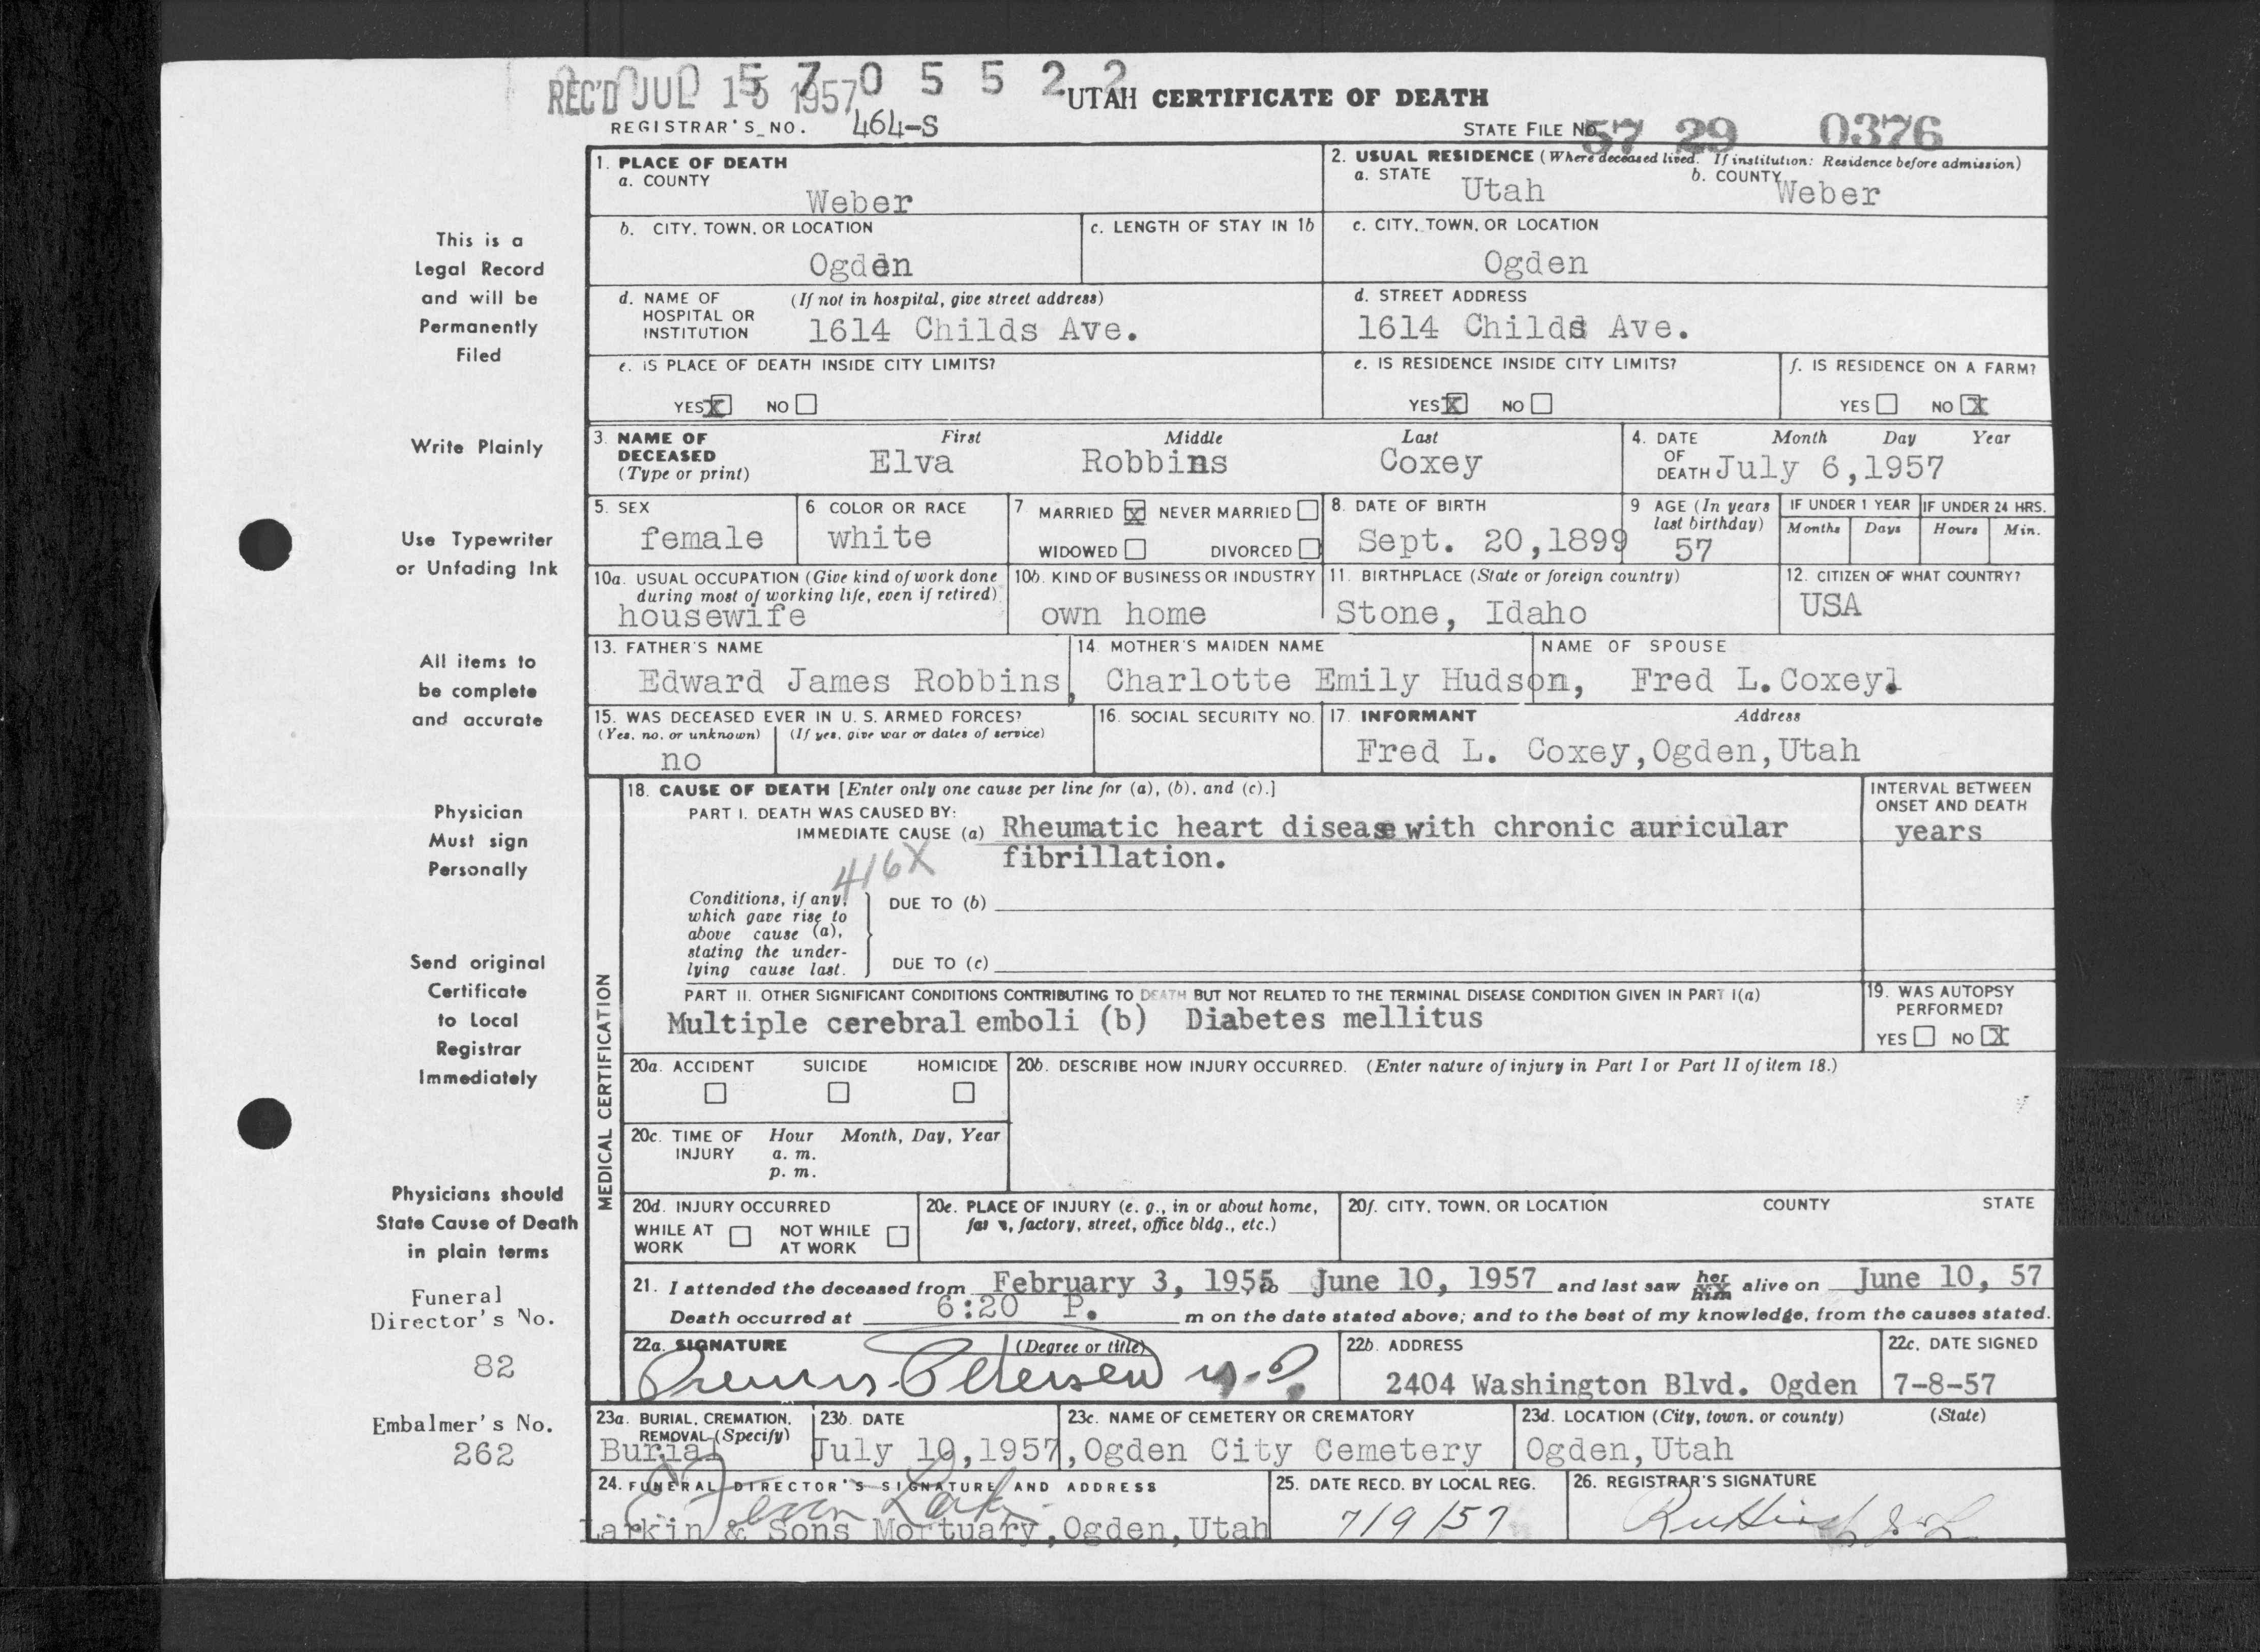 REC'D JUL 15 1957
0 5 7 0 5 5 2 2
UTAH CERTIFICATE OF DEATH
REGISTRAR'S NO. 464-S
STATE FILE NO. 57 29 0376
1. PLACE OF DEATH
a. COUNTY
Weber
2. USUAL RESIDENCE (Where deceased lived. If institution: Residence before admission)
a. STATE Utah b. COUNTY Weber
b. CITY, TOWN, OR LOCATION
Ogden
c. LENGTH OF STAY IN 1b
c. CITY, TOWN, OR LOCATION
Ogden
d. NAME OF HOSPITAL OR INSTITUTION (If not in hospital, give street address)
1614 Childs Ave.
d. STREET ADDRESS
1614 Childs Ave.
e. IS PLACE OF DEATH INSIDE CITY LIMITS?
YES X NO
e. IS RESIDENCE INSIDE CITY LIMITS?
YES X NO
f. IS RESIDENCE ON A FARM?
YES NO X
3. NAME OF DECEASED (Type or print)
First Middle Last
Elva Robbins Coxey
4. DATE OF DEATH Month Day Year
July 6,1957
5. SEX
female
6 COLOR OR RACE
white
7 MARRIED X NEVER MARRIED
WIDOWED DIVORCED
8. DATE OF BIRTH
Sept. 20,1899
9 AGE (In years last birthday)
57
IF UNDER 1 YEAR IF UNDER 24 HRS.
Months Days Hours Min.
10a. USUAL OCCUPATION (Give kind of work done during most of working life, even if retired)
housewife
10b. KIND OF BUSINESS OR INDUSTRY
own home
11. BIRTHPLACE (State or foreign country)
Stone, Idaho
12. CITIZEN OF WHAT COUNTRY?
USA
13. FATHER'S NAME
Edward James Robbins,
14. MOTHER'S MAIDEN NAME
Charlotte Emily Hudson,
NAME OF SPOUSE
Fred L. Coxey.
15. WAS DECEASED EVER IN U. S. ARMED FORCES?
(Yes, no, or unknown) (If yes, give war or dates of service)
no
16. SOCIAL SECURITY NO.
17. INFORMANT Address
Fred L. Coxey,Ogden,Utah
MEDICAL CERTIFICATION
18. CAUSE OF DEATH [Enter only one cause per line for (a), (b), and (c).]
PART I. DEATH WAS CAUSED BY:
IMMEDIATE CAUSE (a) Rheumatic heart disease with chronic auricular
fibrillation.
416X
INTERVAL BETWEEN ONSET AND DEATH
years
Conditions, if any, which gave rise to above cause (a), stating the underlying cause last.
DUE TO (b)
DUE TO (c)
PART II. OTHER SIGNIFICANT CONDITIONS CONTRIBUTING TO DEATH BUT NOT RELATED TO THE TERMINAL DISEASE CONDITION GIVEN IN PART I(a)
Multiple cerebral emboli (b) Diabetes mellitus
19. WAS AUTOPSY PERFORMED?
YES NO X
20a. ACCIDENT SUICIDE HOMICIDE
20b. DESCRIBE HOW INJURY OCCURRED. (Enter nature of injury in Part I or Part II of item 18.)
20c. TIME OF INJURY Hour Month, Day, Year
a. m.
p. m.
20d. INJURY OCCURRED
WHILE AT WORK NOT WHILE AT WORK
20e. PLACE OF INJURY (e. g., in or about home, farm, factory, street, office bldg., etc.)
20f. CITY, TOWN, OR LOCATION COUNTY STATE
21. I attended the deceased from February 3, 1955 to June 10, 1957 and last saw her him alive on June 10, 57
Death occurred at 6:20 P. m on the date stated above; and to the best of my knowledge, from the causes stated.
22a. SIGNATURE (Degree or title)
Petersen M.D.
22b. ADDRESS
2404 Washington Blvd. Ogden
22c. DATE SIGNED
7-8-57
23a. BURIAL, CREMATION, REMOVAL (Specify)
Burial
23b. DATE
July 10,1957,
23c. NAME OF CEMETERY OR CREMATORY
Ogden City Cemetery
23d. LOCATION (City, town, or county) (State)
Ogden,Utah
24. FUNERAL DIRECTOR'S SIGNATURE AND ADDRESS
Larkin & Sons Mortuary,Ogden,Utah
25. DATE RECD. BY LOCAL REG.
7/9/57
26. REGISTRAR'S SIGNATURE
This is a
Legal Record
and will be
Permanently
Filed
Write Plainly
Use Typewriter
or Unfading Ink
All items to
be complete
and accurate
Physician
Must sign
Personally
Send original
Certificate
to Local
Registrar
Immediately
Physicians should
State Cause of Death
in plain terms
Funeral
Director's No.
82
Embalmer's No.
262